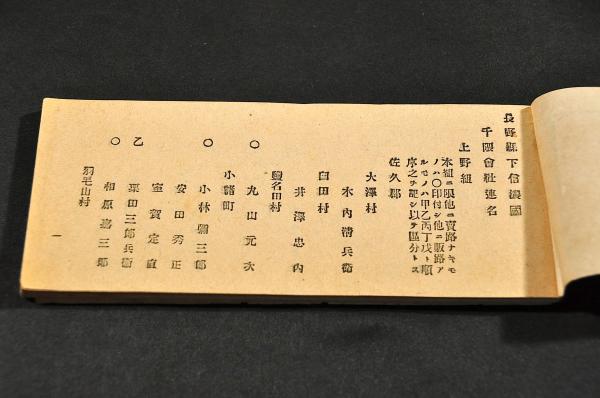 長野縣下信濃國
千隈會社連名
上野組
本組ニ限他ニ賣路ナキモ
ノハ〇印付シ他ニ販路ア
ルモノハ甲乙丙丁戊ト順
序之チ記シ以テ區分トス
佐久郡
大澤村
木内清兵衛
臼田村
井澤忠内
鹽名田村
〇 丸山元次
小諸町
〇 小林彌三郎
安田秀正
乙 室賀定直
栗田三郎兵衛
〇 相原嘉三郎
羽毛山村
一